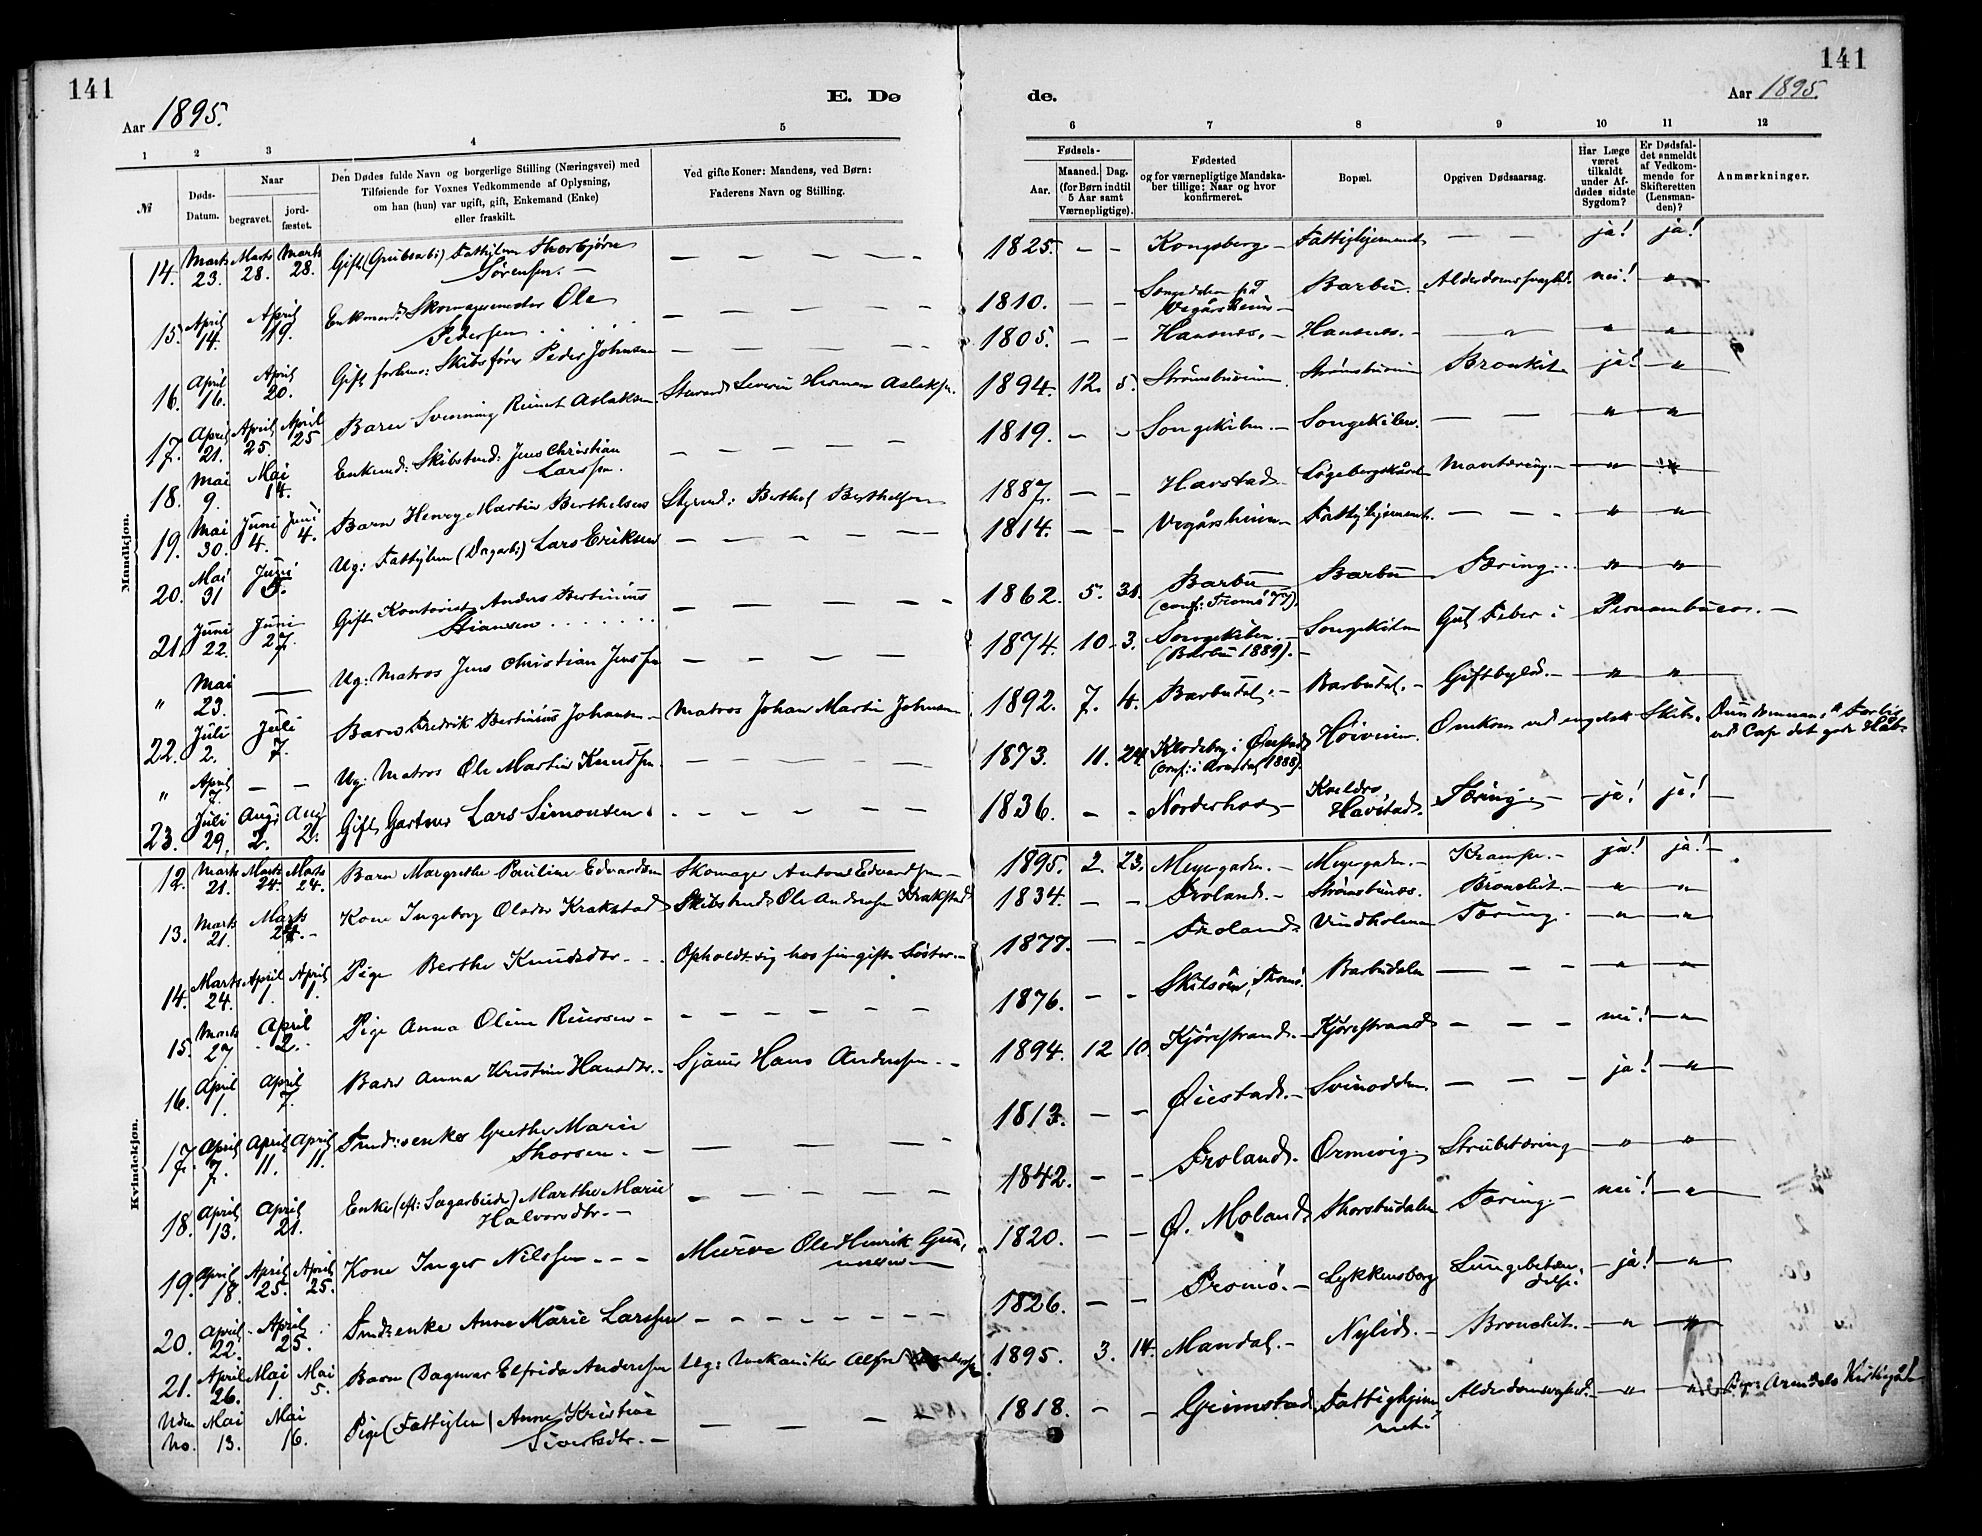 141
Aar 1895.
E. Dø
de.
Aar 1895.
141
1 2 3 4 5 6 7 8 9 10 11 12
№
Døds-
Datum.
Naar
begravet.
jord-
fæstet.
Den Dødes fulde Navn og borgerlige Stilling (Næringsvei) med
Tilføiende for Voxnes Vedkommende af Oplysning,
om han (hun) var ugift, gift, Enkemand (Enke)
eller fraskilt.
Ved gifte Koner: Mandens, ved Børn:
Faderens Navn og Stilling.
Fødsels-
Aar.
Maaned. Dag.
(for Børn indtil
5 Aar samt
Værnepligtige).
Fødested
og for værnepligtige Mandska-
ber tillige: Naar og hvor
konfirmeret.
Bopæl.
Opgiven Dødsaarsag.
Har Læge
været
tilkaldt
under Af-
dødes sidste
Sygdom?
Er Dødsfal-
det anmeldt
af Vedkom-
mende for
Skifteretten
(Lensman-
den)?
Anmærkninger.
Mandkjøn.
14. Marts 23. Marts 28. Marts 28. Gift (Grubearb:) Fattiglem Thorbjørn
Sørensen. — — — — — 1825. — — Kongsberg — Fattighjemmet — — ja! ja!
15. April 14. April 19. Enkemand: Skomagermester Ole
Pedersen — — — — 1810. — — Songedalen
Vegårsheien — Barbu. Alderdomssvaghed. nei! "
16. April 16. April 20. Gift forhenv: Skibsfører Peder Johnsen — — — — 1805. — — Hausnes. — Hausnes. — " " "
17. April 21. April 25. April 25 Barn Svenning Reinert Aslaksen. Stuerand Severin Herman Aslaksen. 1894. 12. 5. Strømsbuveien Strømsbuveien Bronkit ja! "
18. Mai 9. Mai 14. Enkemd: Skibstmd: Jens Christian
Larssen. — — — — 1819. — — Songekilen. — Songekilen. — — " "
19. Mai 30. Juni 4. Juni 4. Barn Henry Martin Berthelsen Styrmd: Berthel Berthelsen 1887. — — Havstad Løgebergskåret — " "
20. Mai 31 Juni 5. Ug: Fattiglem (Dagarb:) Lars Eriksen — — — — 1814. — — Vegårsheien — Fattighjemmet. — — — " "
21. Juni 22. Juni 27. Gift Kontorist Anders Bertinius
Stiansen — — — — 1862. 5. 31. Barbu
(conf: Tromø 77). Barbu Tæring " "
" Mai 23. — Ug: Matros Jens Christian Jenssen — — — — 1874. 10. 3. Songekilen. —
(Barbu 1889). — Songekilen Gul Feber i Pernambuco. —
22. Juli 2. Juli 7. Barn Fredrik Bertinius Johansen — Matros Johan Martin Johnsen 1892. 7. 4. Barbudal. — Barbudal. — Giftbyld. — " "
" April 7. — — Ug: Matros Ole Martin Knudsen. — — — — 1873. 11. 24. Klodeborg i Øiestad
(conf: i Arendal 1888). Høiveien. Omkom ved engelsk Skib.
ved Cap det gode Håb.
23. Juli 29. Aug: 2. Aug 2. Gift Gartner Lars Simonsen. — — — — 1836. — — Norderhov —
Havstad. Tæring. — ja! ja! —
Kvindekjøn.
12. Marts 21. Marts 24. Marts 24. Barn Margrethe Pauline Edvardsen Skomager Anton Edvardsen — 1895. 2. 23. Meyergaden. — Meyergaden. — Krampe. — ja! ja! —
13. Marts 21. Marts 24. — Kone Ingeborg Olsdtr Krakstad Skibstmd: Ole Andersen Krakstad 1834. — — Froland. — Strømsbunes. Bronchit. — " "
14. Marts 24. April 1. April 1. Pige Berthe Knudsdtr. — Opholdt sig hos sin gifte Søster. — 1877. — — Froland. Vindholmen Tæring. — " "
15. Marts 27 April 2. Pige Anna Oline Reiersen — — — — — 1876. — — Skilsøen, Tromø. Barbudalen — — — " "
16. April 1. April 7. Barn Anna Kristine Hansdtr. — Sjauer Hans Andersen. — 1894. 12 10. Kjørestrand. — Kjørestrand — — — nei! "
17. April 7. April 11. April 11. Tmd:senke Grethe Marie
Thorsen. — — — — 1813. — — Øiestad. — Svinodden. — — — ja! "
18. April 13. April 21. Enke (eft: Sagarbeider) Marthe Marie
Halvorsdtr. — — — — — 1842. — — Froland. Ormevig. Strubetæring " "
19. April 18. April 25. April 25. Kone Inger Nilssen — — — Murer Ole Henrik Gun-
nersen — 1820. — — Ø. Moland. Thorsbudalen Tæring. — nei! "
20. April 22. April 25. Tmd:enke Anne Marie Larssen — — — — — 1826. — — Tromø. — Lykkensborg Lungebetæn-
delse. — ja! "
21. April 26. Mai 1. Mai 5. Barn Dagmar Elfrida Andersen Ug: Mekaniker Alfred Andersen 1895. 3. 14. Mandal. — Nylid. — Bronchit. — " "
Uden No. Mai 13. Mai 16. Pige (Fattiglem) Anne Kristine
Sivertsdtr. — — — — 1818. — — Grimstad Fattighjem-
met. Alderdomssvaghed. — " " Arendals Kirkegård